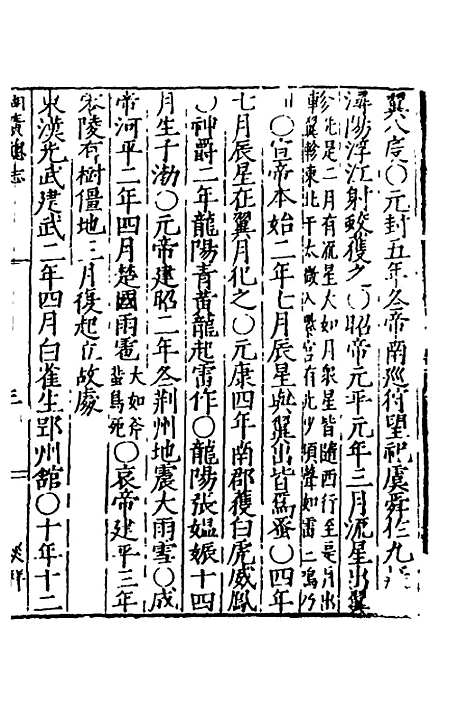 翼八度〇元封五年冬帝南巡狩望祀虞舜仁九
潯陽浮江射蛟獲之〇昭帝元平元年三月流星出翼
軫先是二月有流星大如月眾星皆隨西行至是月出
軫翼東北干太微入紫宫有光
頃聲如雷二鳴乃
〇宣帝本始二年七月辰星與翼出皆爲蚤〇四年
七月辰星在翼月犯之〇元康四年南郡獲白虎威鳳
〇神爵二年龍陽青黃龍起雷作〇龍陽張媪娠十四
月生子渤〇元帝建昭二年冬荆州地震大雨雪〇成
帝河平二年四月楚國雨雹大如斧蜚鳥死〇哀帝建平三年
零陵有樹僵地三月復起立故處
東漢光武建武二年四月白雀生郢州舘〇十年十二
湖廣總志
三
災祥